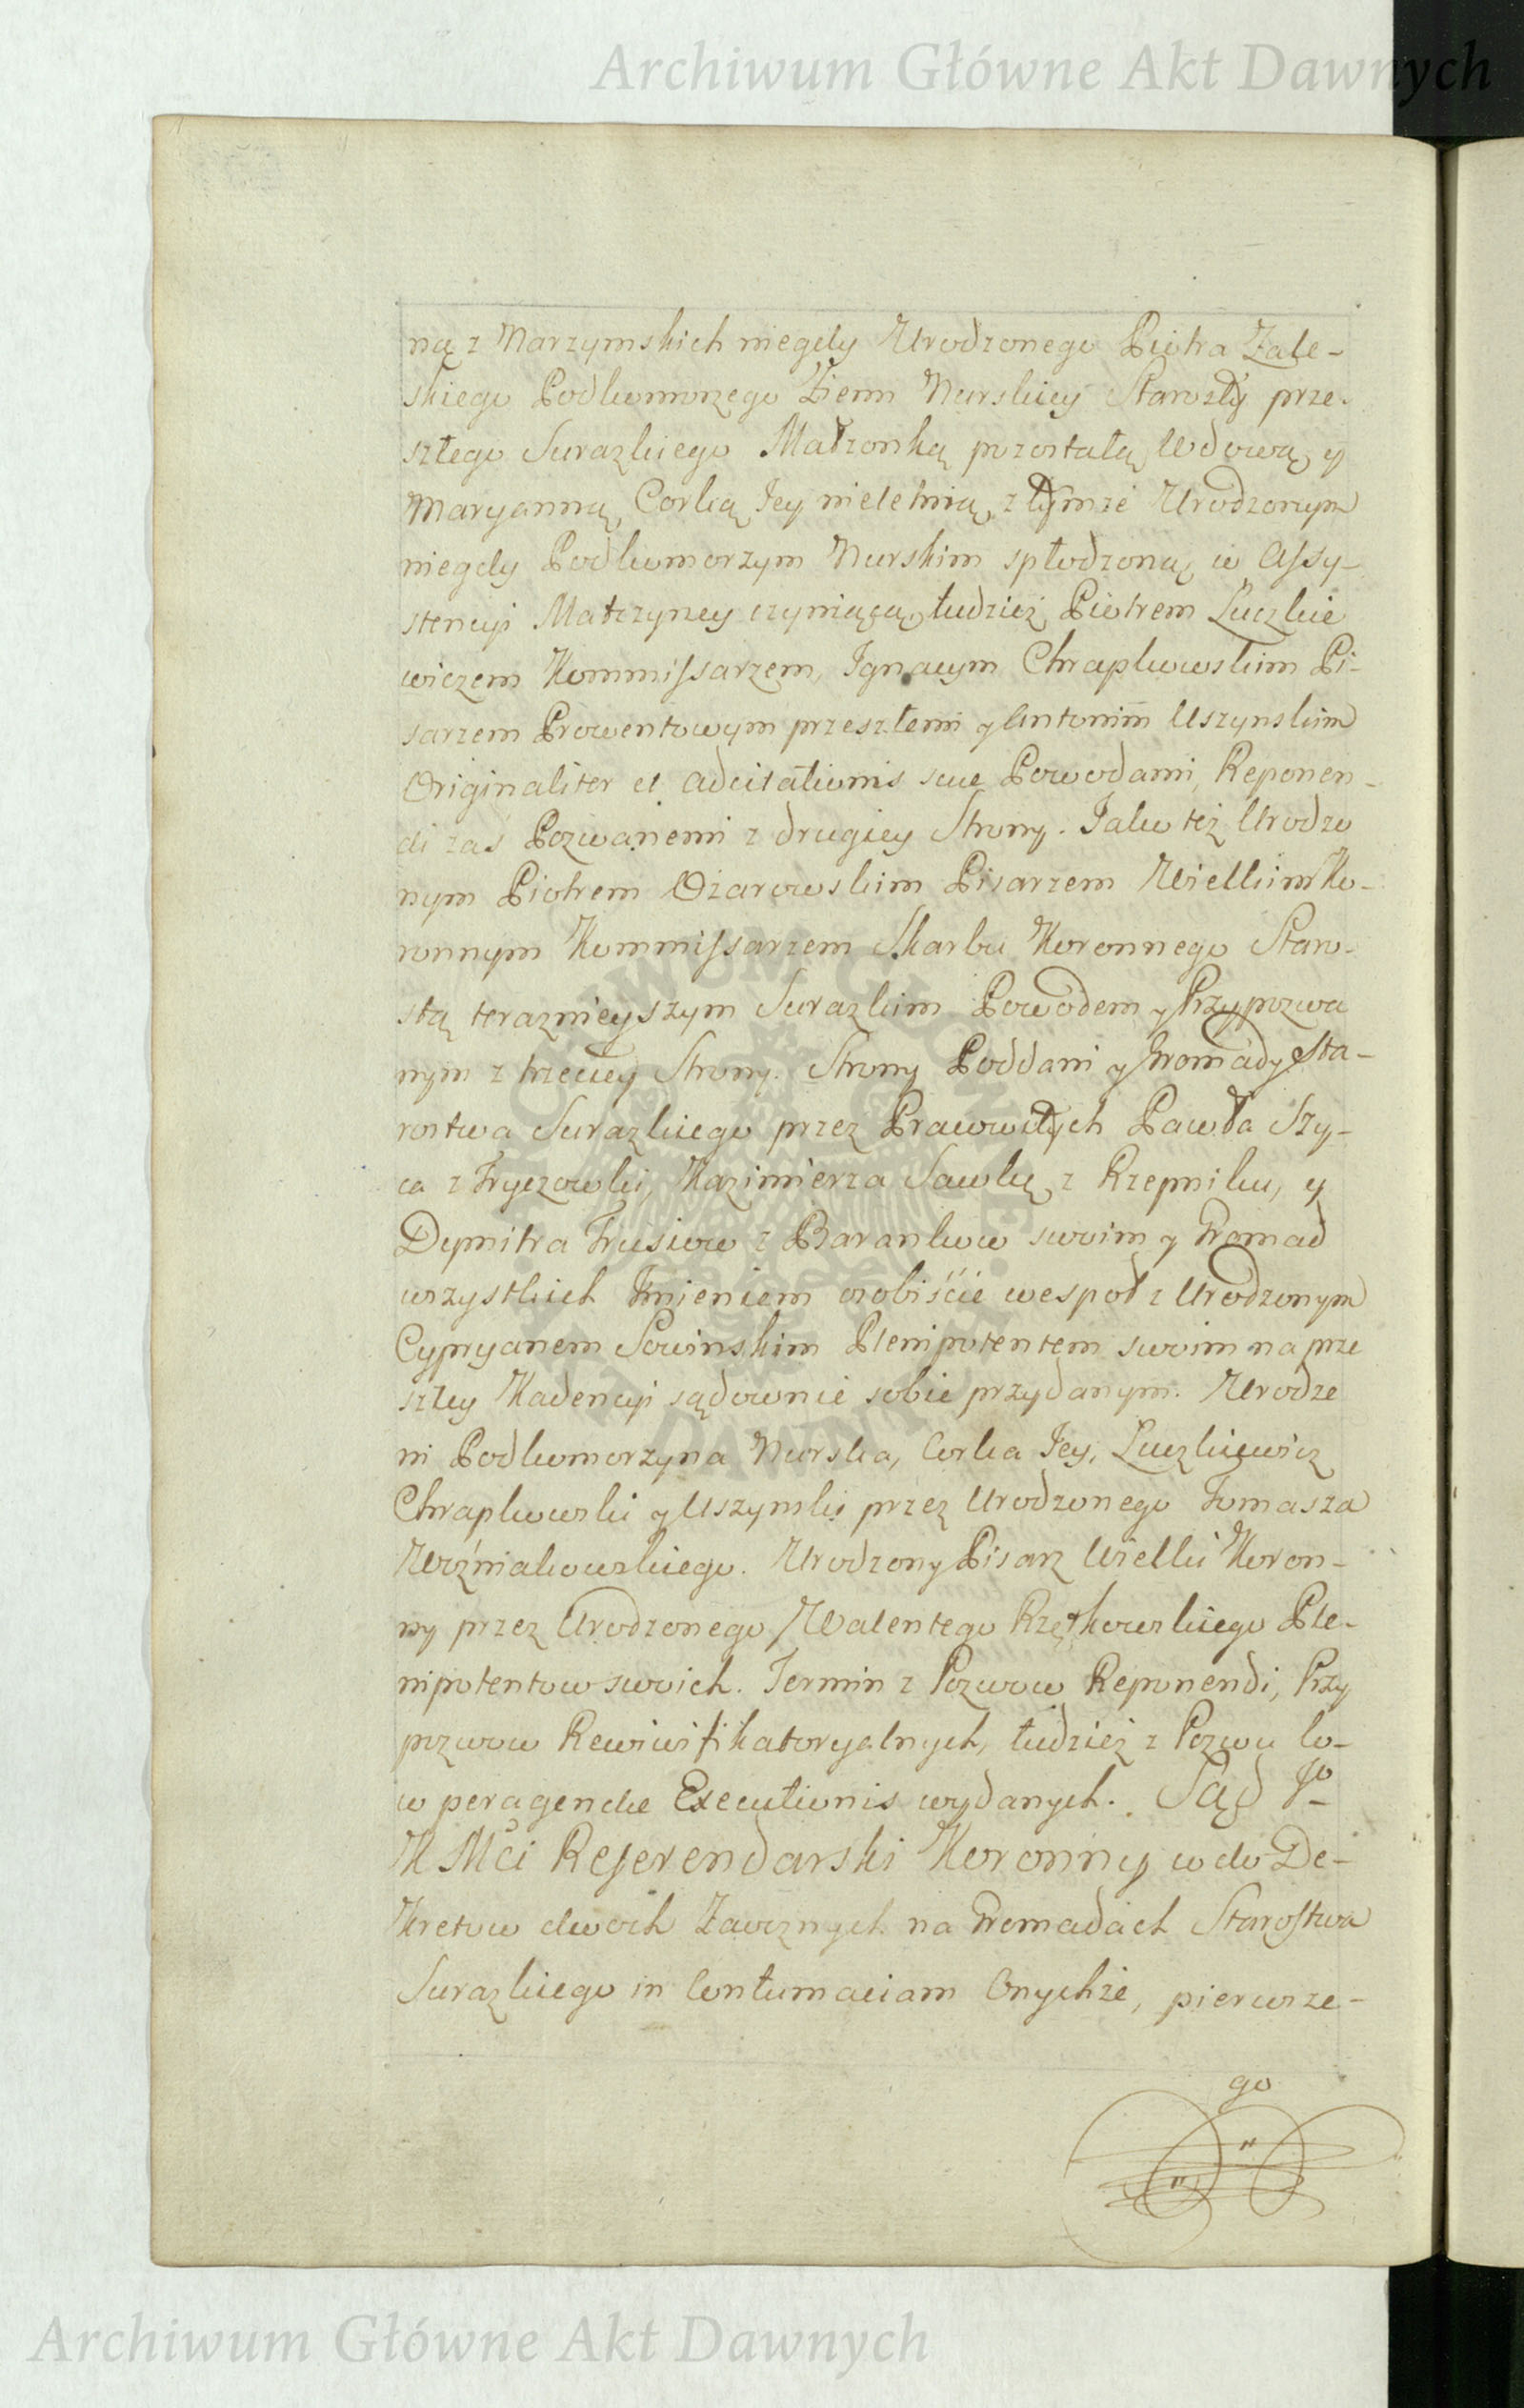 Archiwum Główne Akt Dawnych
ną z Marzymskich niegdy Urodzonego Piotra Zale-
skiego Podkomorzego Ziemi Nurskiey Starosty prze-
szłego Surazkiego Małżonką pozostałą Wdową, y
Maryanną Corką Jey nieletnią, z tymże Urodzonym
niegdy Podkomorzym Nurskim spłodzoną w Assy-
stencyi Matczyney czyniącą, tudzież Piotrem Łuczkie
wiczem Kommissarzem, Ignacym Chrapkowskim Pi-
sarzem Prowentowym przeszłemi y Antonim Uszynskim
Originaliter et adcitationis suæ Powodami, Reponen-
di zaś Pozwanemi z drugiey Strony. Jako też Urodzo
nym Piotrem Ożarowskim Pisarzem Wielkim Ko-
ronnym Kommissarzem Skarbu Koronnego Staro-
stą terazniejszym Surazkim Powodem y Przypozwa
nym z trzeciey Strony. Strony Poddani y Gromady Sta-
rostwa Surazkiego przez Prawowitych Pawła Szy-
ca z Tryczowki, Kazimierza Sawkę z Rzepnik, y
Dymitra Trusiow z Barankow swoim y Gromad
wszystkich Imieniem osobiście wespoł z Urodzonym
Cypryanem Sowinskim Plenipotentem swoim na prze
szłey Kadencyi sądownie sobie przydanym. Urodze
ni Podkomorzyna Nurska, Corka Jey, Łuczkiewicz
Chrapkowski y Uszynski przez Urodzonego Tomasza
Woźniakowskiego. Urodzony Pisarz Wielki Koron-
ny przez Urodzonego Walentego Rzętkowskiego Ple-
nipotentow swoich. Termin z Pozwow Reponendi, Przy
pozwow Rewiwifikatoryalnych, tudzież z Pozwu lo-
co peragendæ Executionis wydanych. Sąd Jo
K Mci Referendarski Koronny co do De-
kretow dwoch Zaocznych na Gromadach Starostwa
Surazkiego in Contumaciam Onychże, pierwsze-
go
Archiwum Główne Akt Dawnych